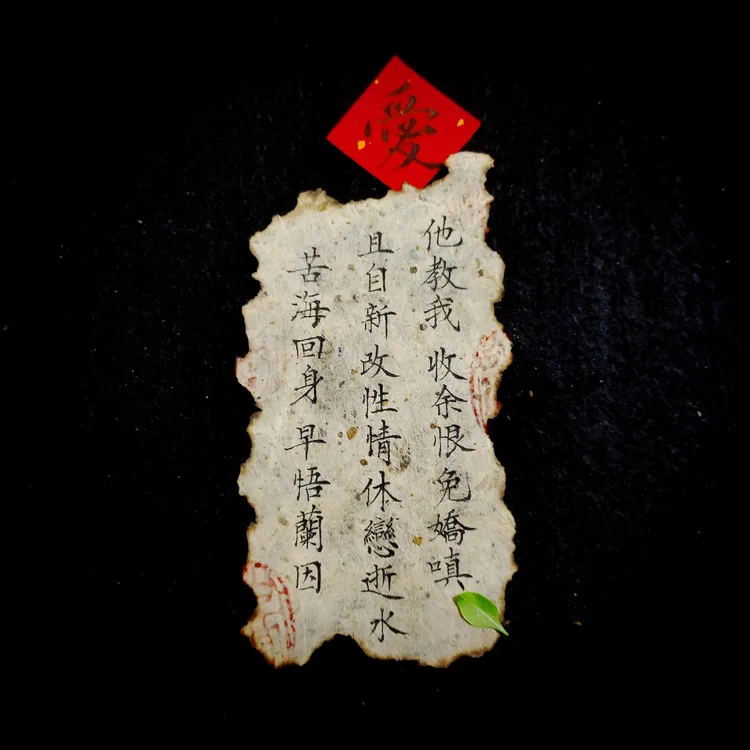 愛
他教我 收余恨 免嬌嗔
且自新 改性情 休戀逝水
苦海回身 早悟蘭因